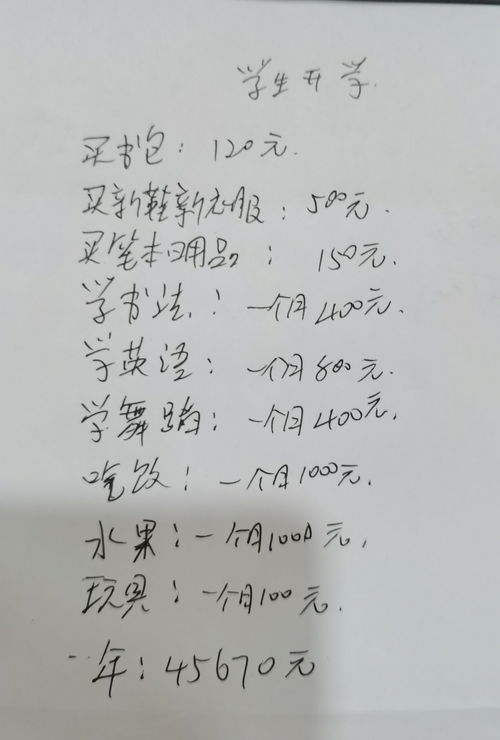 学生开学.
买书包：120元.
买新鞋新衣服：500元.
买笔本日用品：150元.
学书法：一个月400元.
学英语：一个月800元.
学舞蹈：一个月400元.
吃饭：一个月1000元.
水果：一个月1000元.
玩具：一个月100元.
一年：45670元